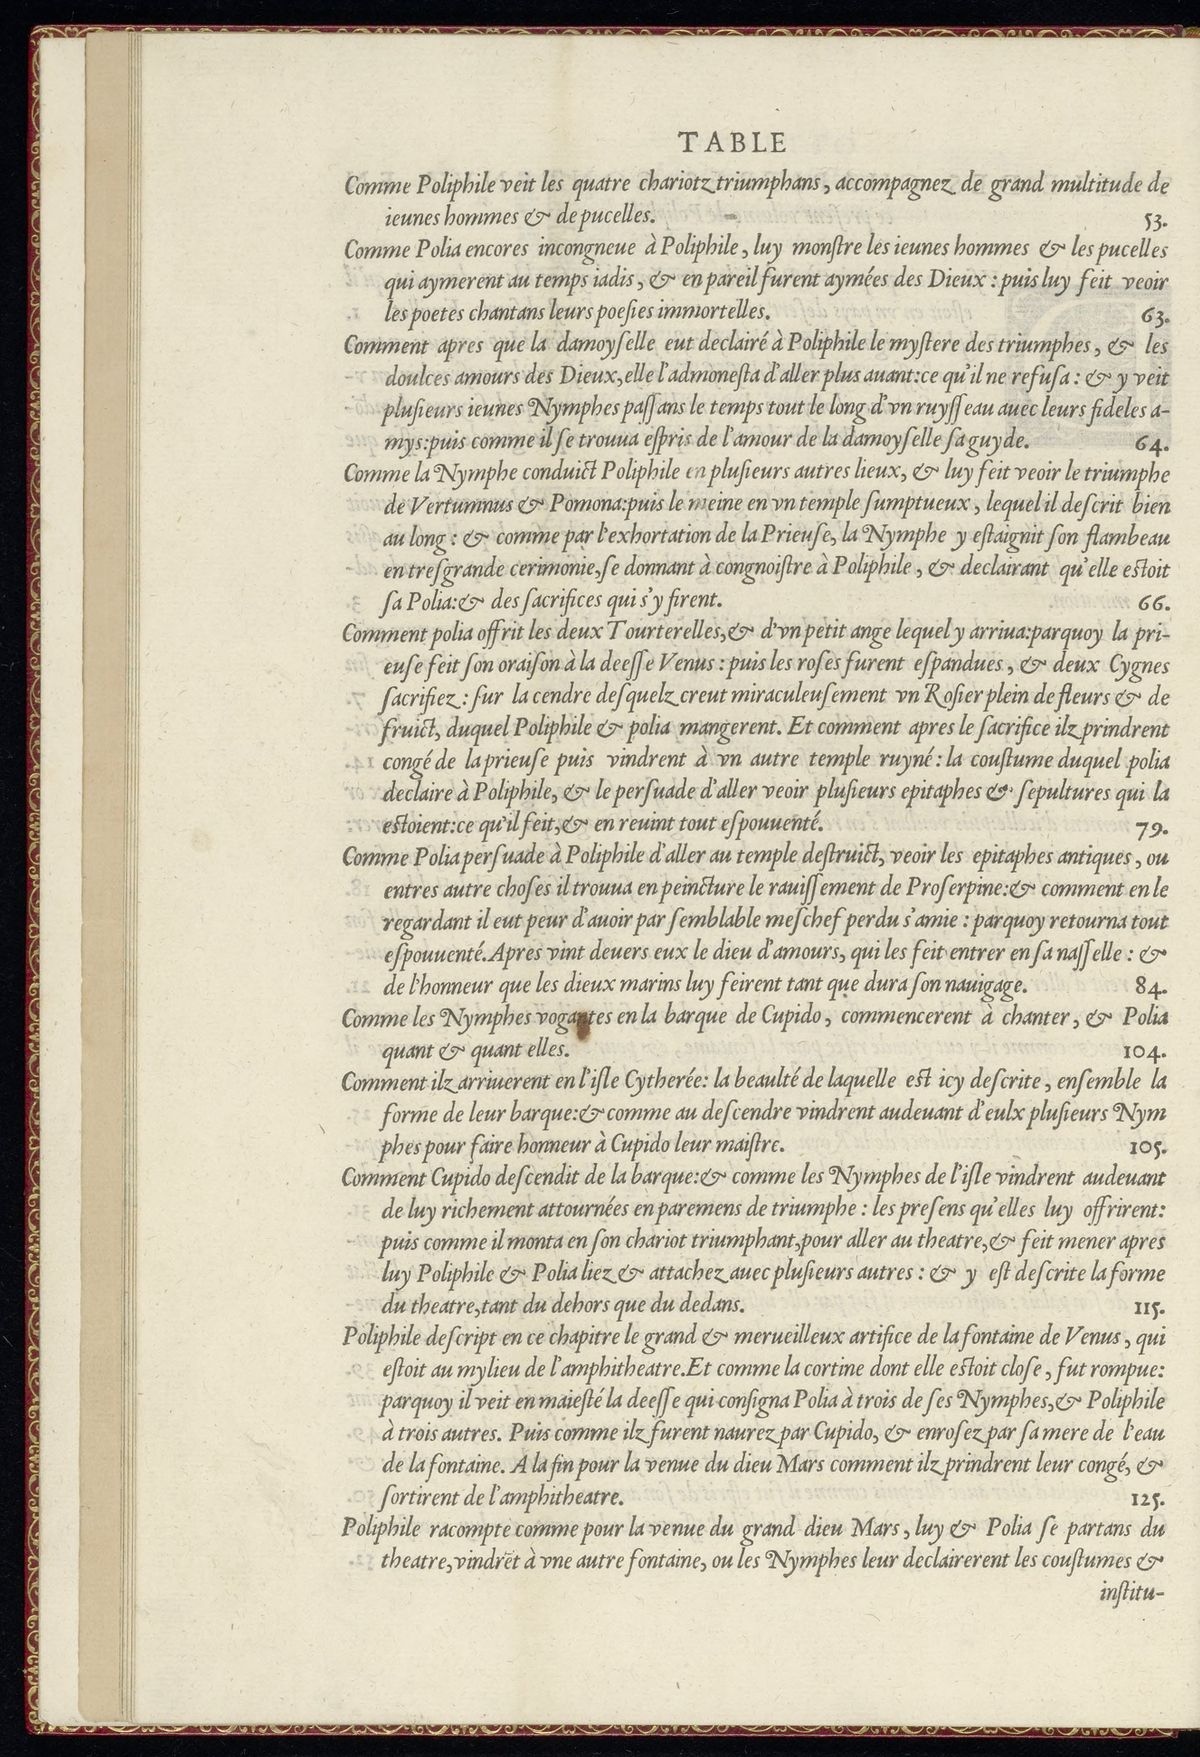 TABLE
Comme Poliphile veit les quatre chariotz triumphans, accompagnez de grand multitude de
ieunes hommes & de pucelles. 53.
Comme Polia encores incongneue à Poliphile, luy monſtre les ieunes hommes & les pucelles
qui aymerent au temps iadis, & en pareil furent aymées des Dieux : puis luy feit veoir
les poetes chantans leurs poeſies immortelles. 63.
Comment apres que la damoyſelle eut declairé à Poliphile le myſtere des triumphes, & les
doulces amours des Dieux, elle l'admoneſta d'aller plus auant: ce qu'il ne refuſa : & y veit
pluſieurs ieunes Nymphes paſſans le temps tout le long d'vn ruyſſeau auec leurs fideles a-
mys: puis comme il ſe trouua eſpris de l'amour de la damoyſelle ſa guyde. 64.
Comme la Nymphe conduict Poliphile en pluſieurs autres lieux, & luy feit veoir le triumphe
de Vertumnus & Pomona: puis le meine en vn temple ſumptueux, lequel il deſcrit bien
au long : & comme par l'exhortation de la Prieuſe, la Nymphe y eſtaignit ſon flambeau
en treſgrande cerimonie, ſe donnant à congnoiſtre à Poliphile, & declairant qu'elle eſtoit
ſa Polia: & des ſacrifices qui s'y firent. 66.
Comment polia offrit les deux Tourterelles, & d'vn petit ange lequel y arriua: parquoy la pri-
euſe feit ſon oraiſon à la deeſſe Venus : puis les roſes furent eſpandues, & deux Cygnes
ſacrifiez : ſur la cendre deſquelz creut miraculeuſement vn Roſier plein de fleurs & de
fruict, duquel Poliphile & polia mangerent. Et comment apres le ſacrifice ilz prindrent
congé de la prieuſe puis vindrent à vn autre temple ruyné : la couſtume duquel polia
declaire à Poliphile, & le perſuade d'aller veoir pluſieurs epitaphes & ſepultures qui la
eſtoient: ce qu'il feit, & en reuint tout eſpouuenté. 79.
Comme Polia perſuade à Poliphile d'aller au temple deſtruict, veoir les epitaphes antiques, ou
entres autre choſes il trouua en peincture le rauiſſement de Proſerpine: & comment en le
regardant il eut peur d'auoir par ſemblable meſchef perdu s'amie : parquoy retourna tout
eſpouuenté. Apres vint deuers eux le dieu d'amours, qui les feit entrer en ſa naſſelle : &
de l'honneur que les dieux marins luy feirent tant que dura ſon nauigage. 84.
Comme les Nymphes vogantes en la barque de Cupido, commencerent à chanter, & Polia
quant & quant elles. 104.
Comment ilz arriuerent en l'iſle Cytherée: la beaulté de laquelle eſt icy deſcrite, enſemble la
forme de leur barque: & comme au deſcendre vindrent audeuant d'eulx pluſieurs Nym
phes pour faire honneur à Cupido leur maiſtre. 105.
Comment Cupido deſcendit de la barque: & comme les Nymphes de l'iſle vindrent audeuant
de luy richement attournées en paremens de triumphe : les preſens qu'elles luy offrirent:
puis comme il monta en ſon chariot triumphant, pour aller au theatre, & feit mener apres
luy Poliphile & Polia liez & attachez auec pluſieurs autres : & y eſt deſcrite la forme
du theatre, tant du dehors que du dedans. 115.
Poliphile deſcript en ce chapitre le grand & merueilleux artifice de la fontaine de Venus, qui
eſtoit au mylieu de l'amphitheatre. Et comme la cortine dont elle eſtoit cloſe, fut rompue:
parquoy il veit en maieſté la deeſſe qui conſigna Polia à trois de ſes Nymphes, & Poliphile
à trois autres. Puis comme ilz furent naurez par Cupido, & enroſez par ſa mere de l'eau
de la fontaine. A la fin pour la venue du dieu Mars comment ilz prindrent leur congé, &
ſortirent de l'amphitheatre. 125.
Poliphile racompte comme pour la venue du grand dieu Mars, luy & Polia ſe partans du
theatre, vindrēt à vne autre fontaine, ou les Nymphes leur declairerent les couſtumes &
inſtitu-